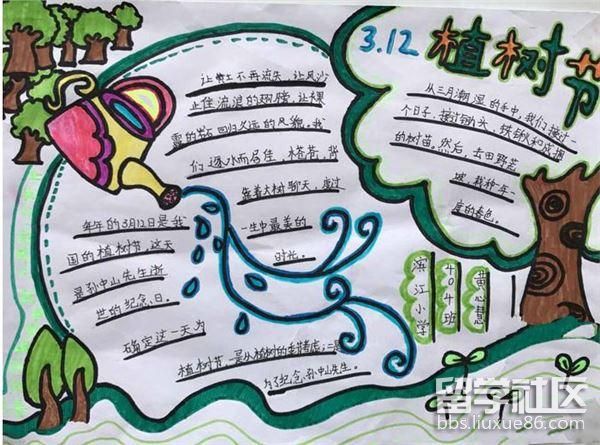 3.12 植树节
让黄土不再流失,让风沙
止住流浪的翅膀,让裸
露的岩石回归久远的风貌,我
们逐水而居住,榕荷,背
靠着大树聊天,度过
一生中最美的
时光。
从三月潮湿的手中,我们接过一
个日子,接过锄头、铁锹和皮相
的树苗,然后,去田野荒
坡,栽种一年一
度的春色。
每年的3月12日是我
国的植树节,这天
是孙中山先生逝
世的纪念日。
确定这一天为
植树节,一是从植树的季节考虑;二是
为了纪念孙中山先生。
滨江小学
404班
黄心慧
留学社区
bbs.liuxue86.com